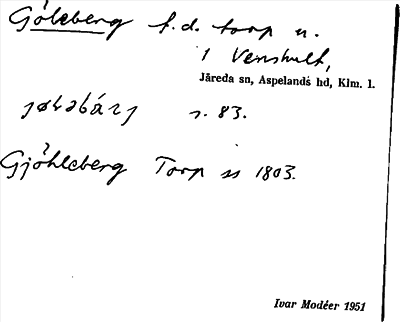 Göleberg f.d. torp u.
1 Venshult,
Järeda sn, Aspelands hd, Klm. l.
s. 83.
Gjöhleberg Torp ss 1803.
Ivar Modéer 1951